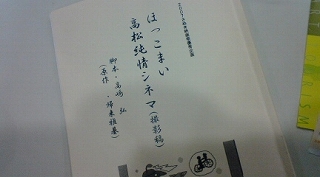 ほっこまい
高松純情シネマ(撮影稿)
脚本・高嶋 弘
(原作・帰来雅基)